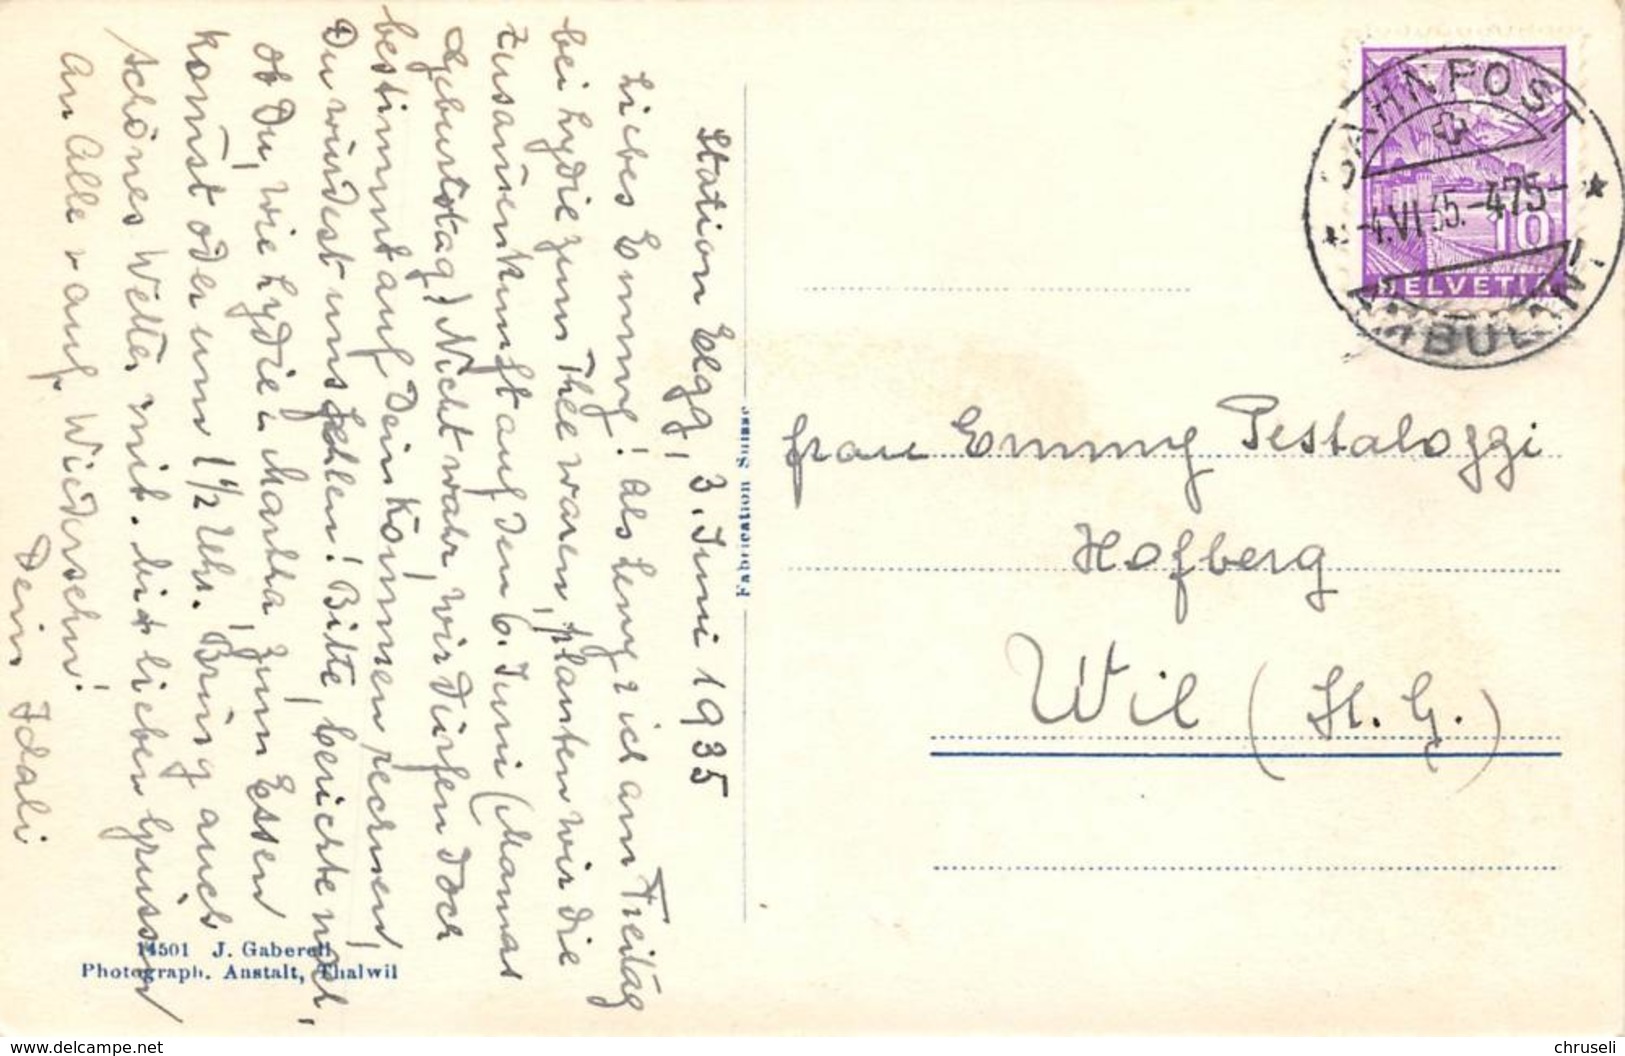 Station Elgg, 3. Juni 1935
Liebes Emmy! Als Leny & ich am Freitag
bei Lydie zum Thee waren, planten wir die
Zusam̄enkunft auf den 6. Juni (Mamas
Geburtstag) Nicht wahr, wir dürfen doch
bestimmt auf Dein Kom̄en rechnen,
Du würdest uns fehlen! Bitte, berichte noch,
ob Du, wie Lydie u. Martha, zum Essen
kom̄st oder um 1 1/2 Uhr. Bring auch
schönes Wetter mit. Mit lieben Grüssen
an Alle & auf Wiedersehn!
Dein Idali
14501 J. Gaberell,
Photograph. Anstalt, Thalwil
Fabrikation Suisse
BAHNPOST
-4.VI.35.-475-
AMBULANT
10
HELVETIA
Frau Emmy Pestalozzi
Hofberg
Wil (St. G.)
www.delcampe.net
chruseli